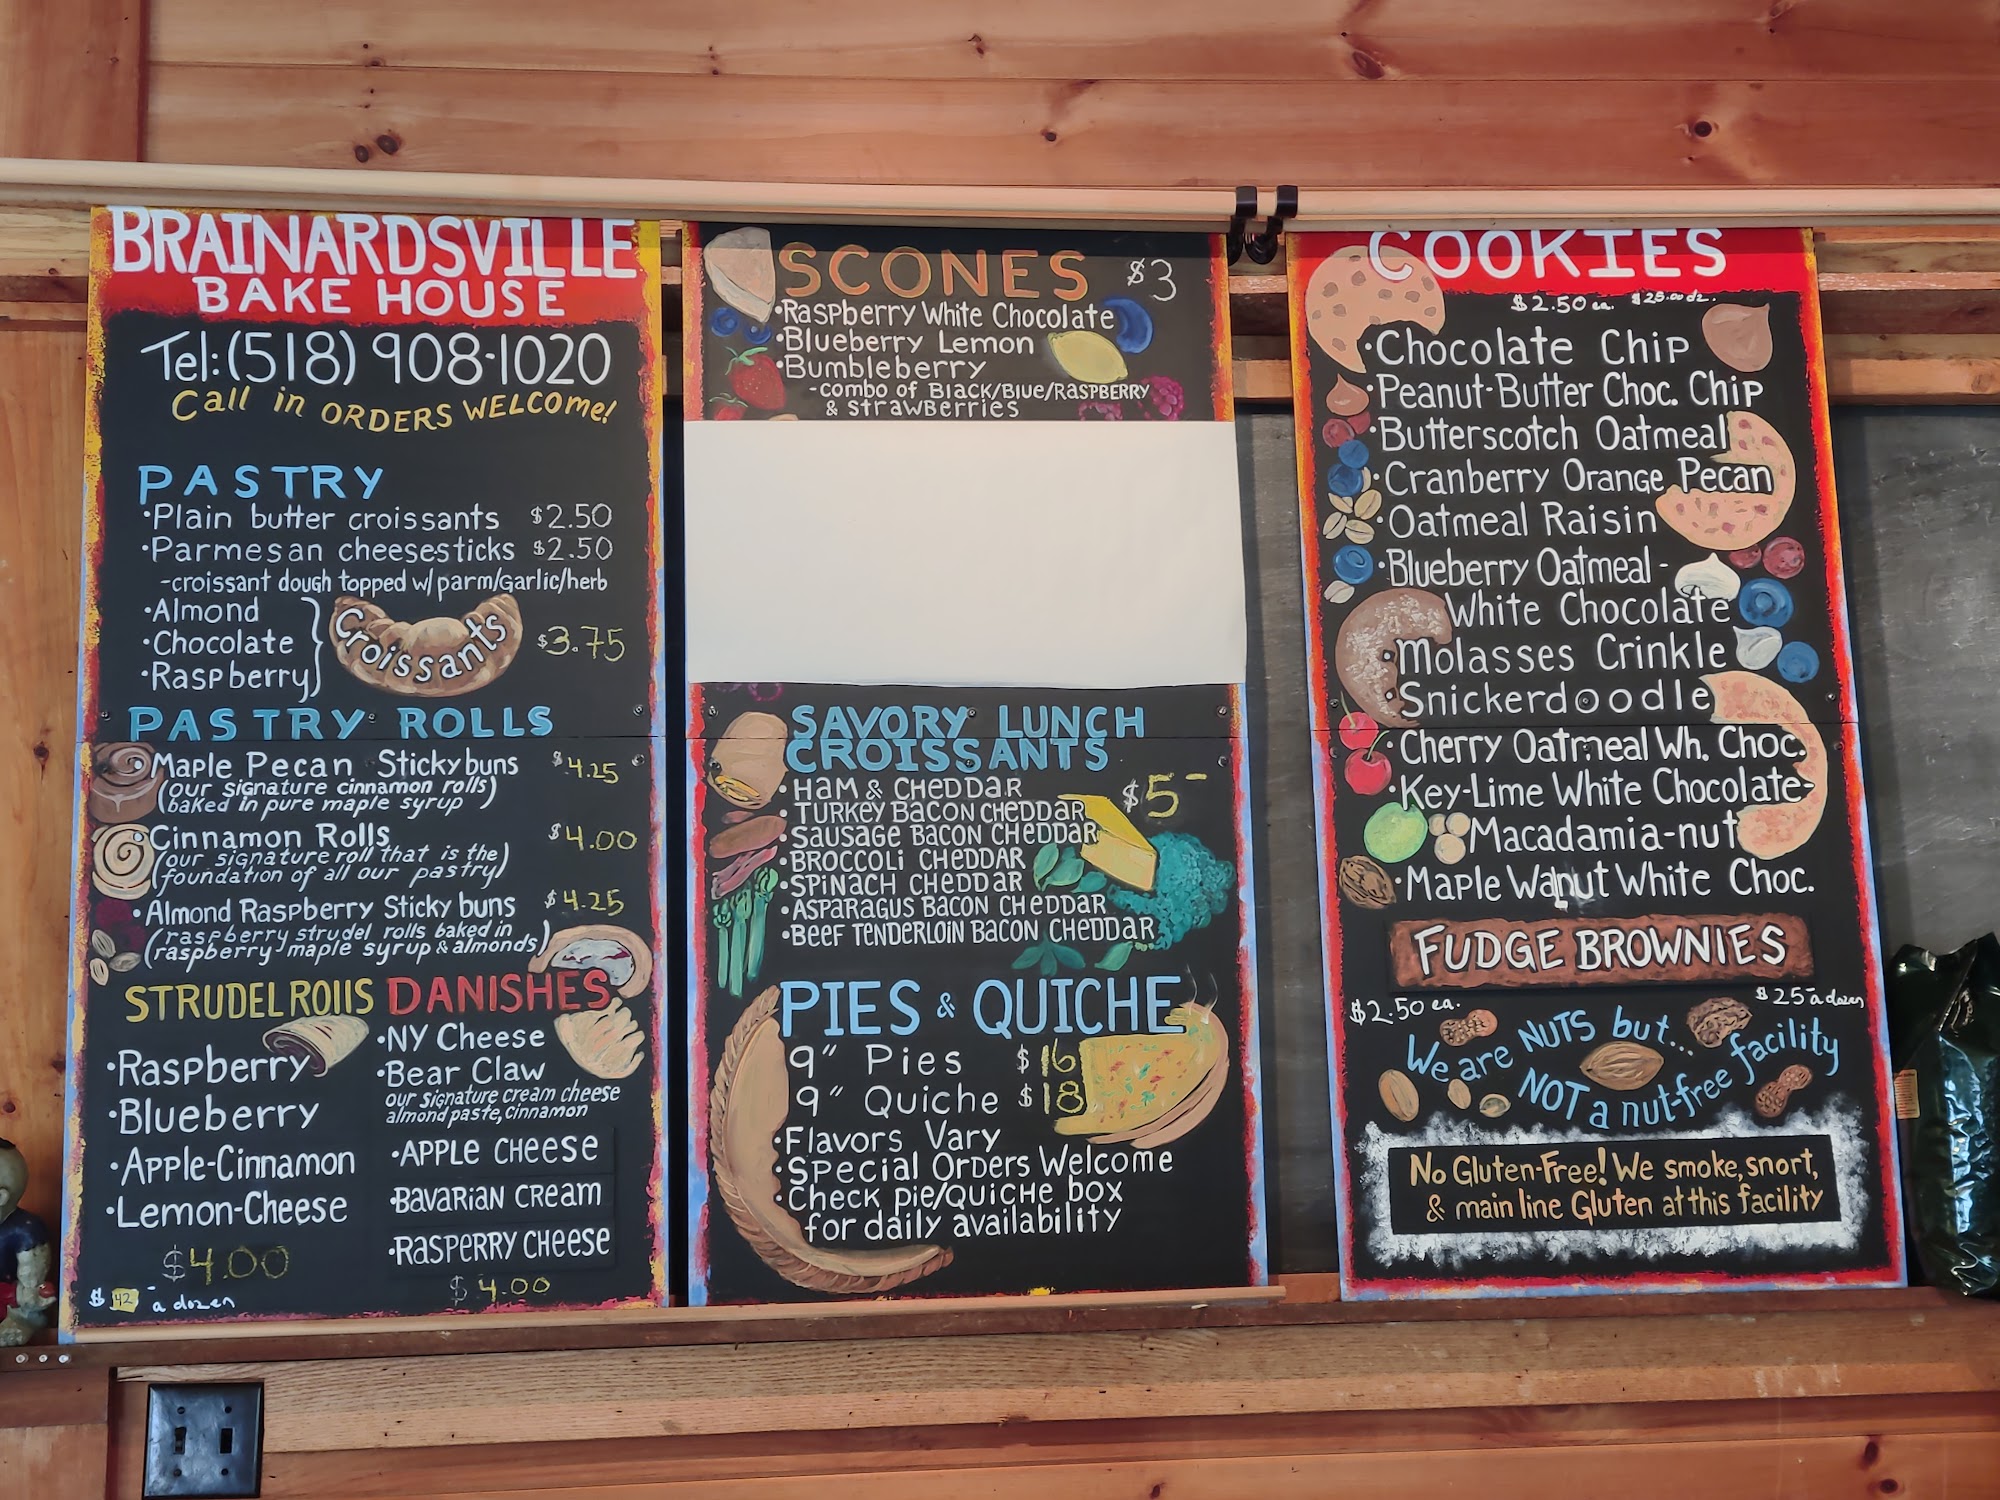 BRAINARDSVILLE
BAKE HOUSE
Tel: (518) 908-1020
Call in ORDERS WELCOMe!
PASTRY
•Plain butter croissants $2.50
•Parmesan cheesesticks $2.50
-croissant dough topped w/parm/garlic/herb
•Almond
•Chocolate
•Raspberry
Croissants
$3.75
PASTRY ROLLS
•Maple Pecan Stickybuns $4.25
(our signature cinnamon rolls)
(baked in pure maple syrup)
•Cinnamon Rolls $4.00
(our signature roll that is the)
(foundation of all our pastry)
•Almond Raspberry Sticky buns $4.25
(raspberry strudel rolls baked in
(raspberry-maple syrup & almonds)
STRUDEL ROllS
•Raspberry
•Blueberry
•Apple-Cinnamon
•Lemon-Cheese
$4.00
$42- a dozen
DANISHES
•NY Cheese
•Bear Claw
our signature cream cheese
almond paste, cinnamon
•APPLE CHEESE
•BAVARIAN CREAM
•RASPERRY CHEESE
$4.00
SCONES $3
•Raspberry White Chocolate
•Blueberry Lemon
•Bumbleberry
-combo of Black/Blue/Raspberry
& strawberries
SAVORY LUNCH
CROISSANTS
$5-
•HAM & CHEDDAR
•TURKEY BACON CHEDDAR
•SAUSAGE BACON CHEDDAR
•BROCCOLI CHEDDAR
•SPINACH CHEDDAR
•ASPARAGUS BACON CHEDDAR
•BEEF TENDERLOIN BACON CHEDDAR
PIES & QUICHE
9" Pies $16
9" Quiche $18
•Flavors Vary
•Special Orders Welcome
•Check pie/quiche box
for daily availability
COOKIES
$2.50 ea. $25.00 dz.
•Chocolate Chip
•Peanut-Butter Choc. Chip
•Butterscotch Oatmeal
•Cranberry Orange Pecan
•Oatmeal Raisin
•Blueberry Oatmeal-
White Chocolate
•Molasses Crinkle
•Snickerdoodle
•Cherry Oatmeal Wh. Choc.
•Key-Lime White Chocolate-
Macadamia-nut
•Maple Walnut White Choc.
FUDGE BROWNIES
$2.50 ea. $25- a dozen
We are NUTS but...
NOT a nut-free facility
No Gluten-Free! We smoke, snort,
& main line Gluten at this facility